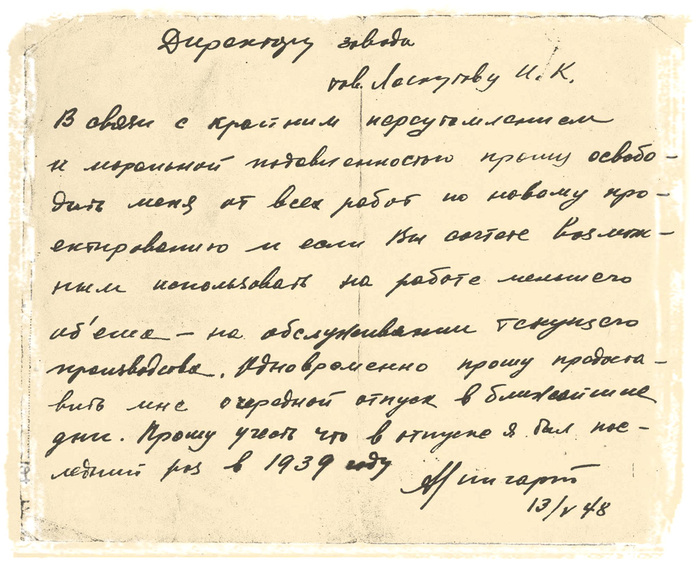 Директору завода
тов. Ласкутову И. К.
В связи с крайним переутомлением
и моральной подавленностью прошу освобо-
дить меня от всех работ по новому про-
ектированию и если Вы сочтете возмож-
ным использовать на работе меньшего
об'ема – на обслуживании текущего
производства. Одновременно прошу предоста-
вить мне очередной отпуск в ближайшие
дни. Прошу учесть что в отпуске я был пос-
ледний раз в 1939 году
13/V 48